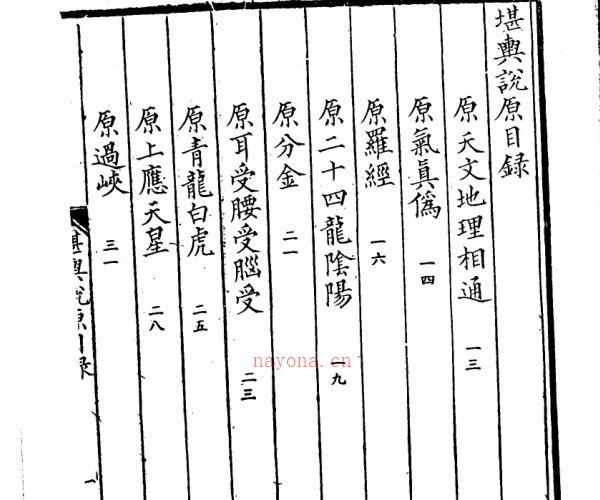 堪輿說原目録
原天文地理相通 一三
原氣眞僞 一四
原羅經 一六
原二十四龍陰陽 一九
原分金 二一
原耳受腰受腦受 二三
原青龍白虎 二五
原上應天星 二八
原過峽 三一
堪輿說原目録 一
nayona.cn